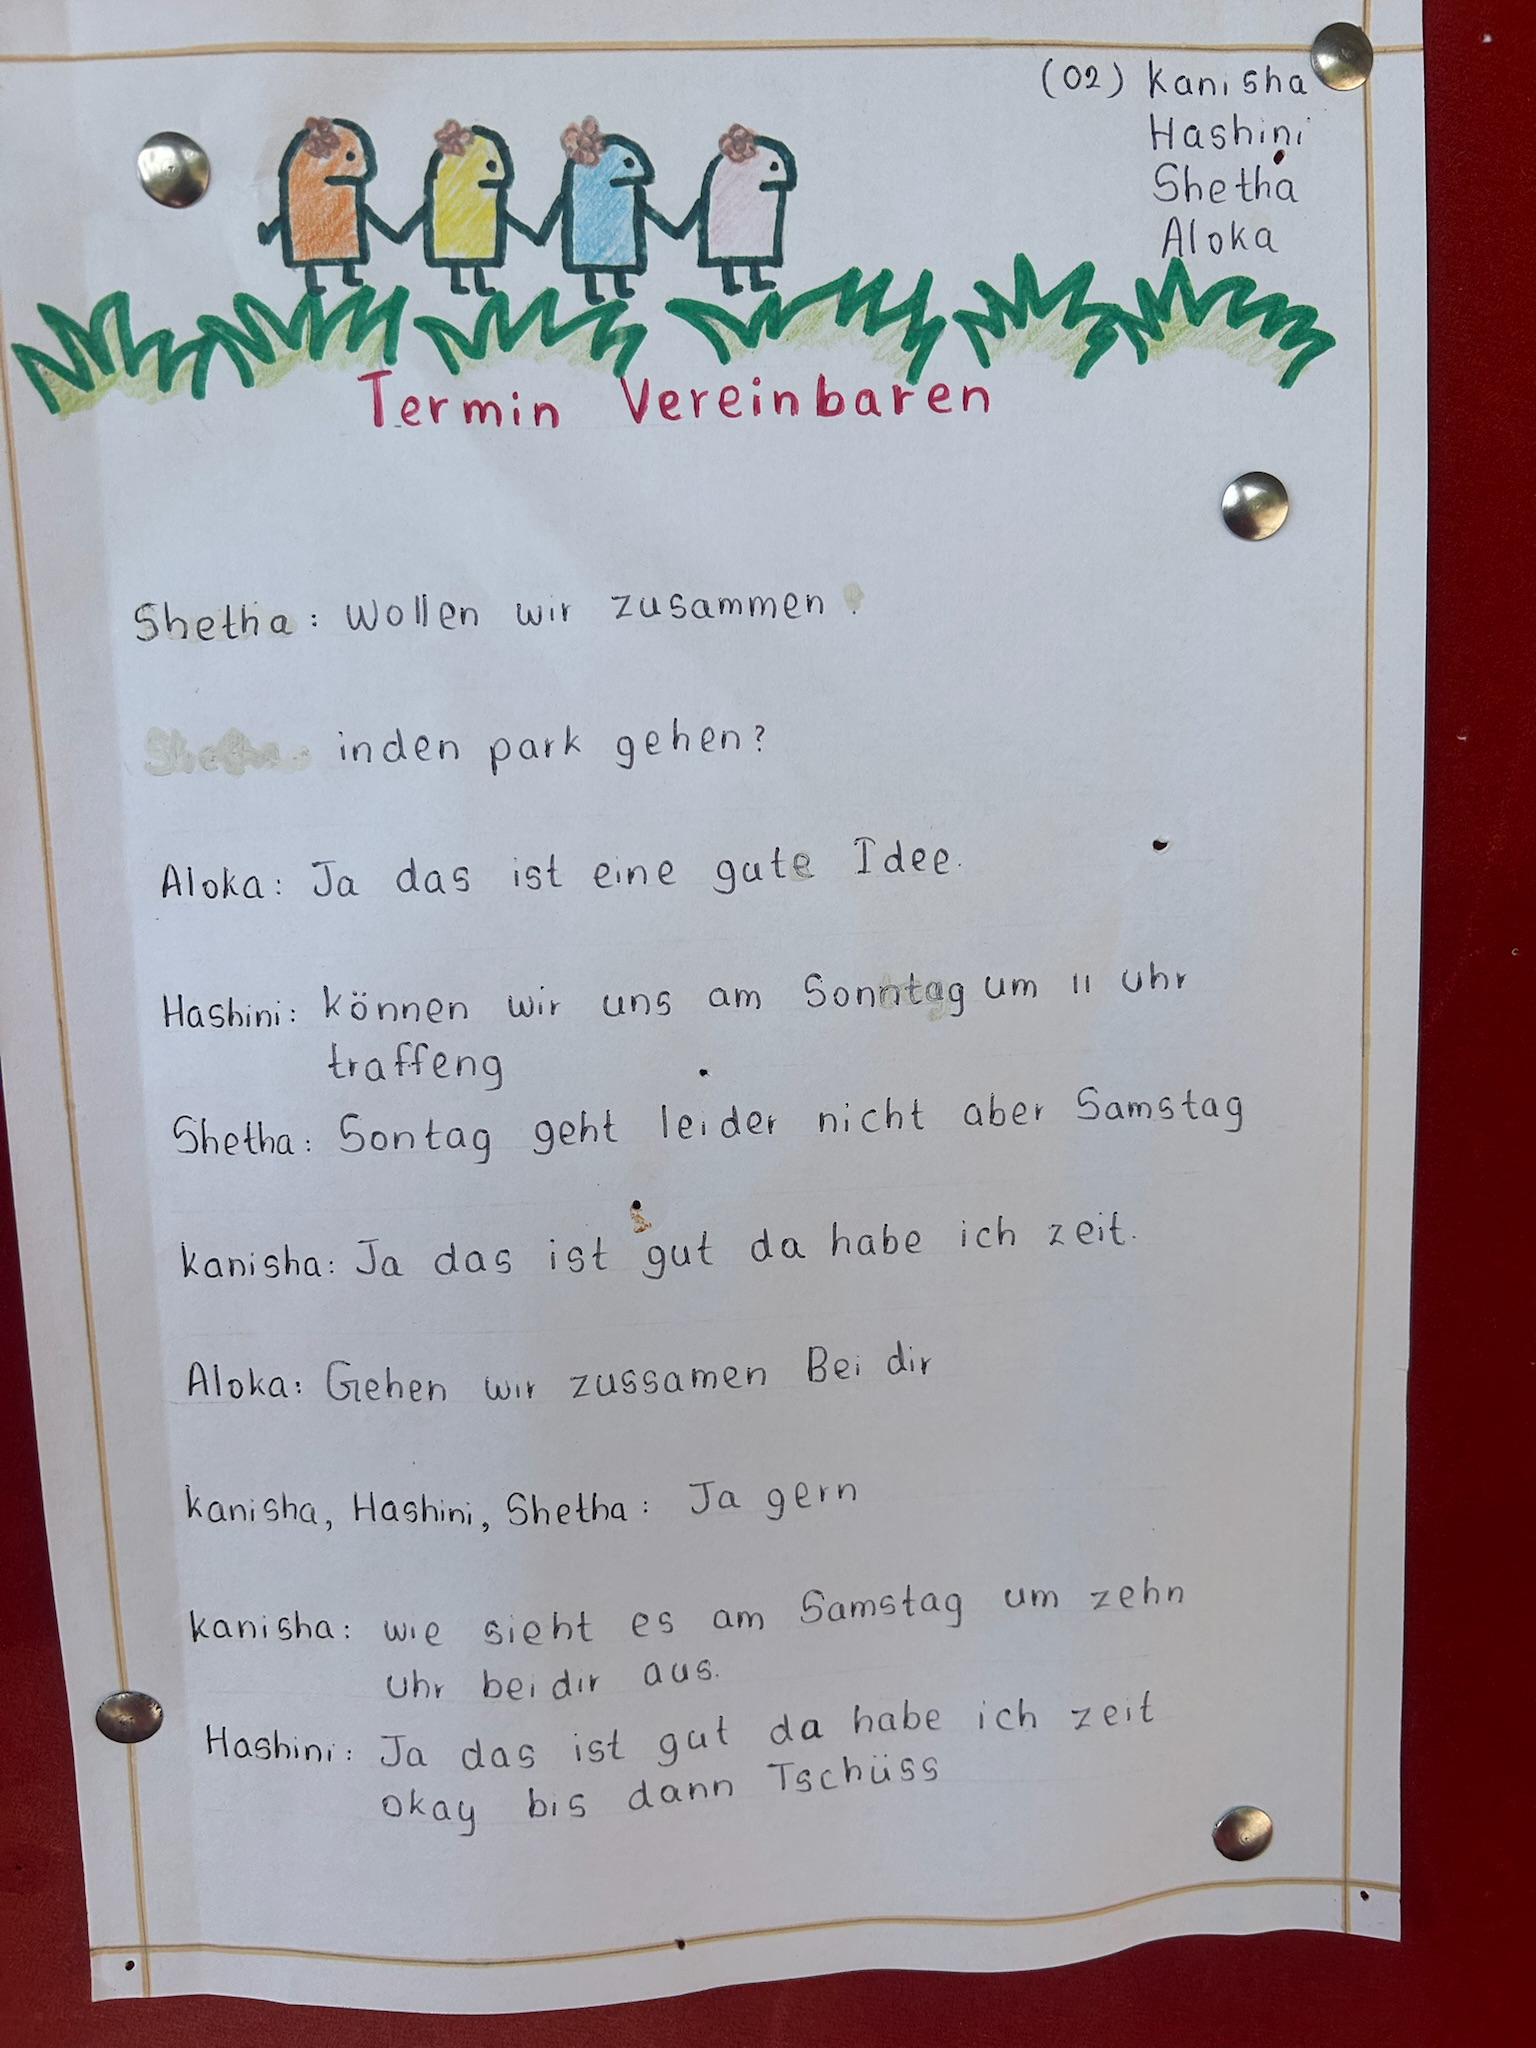 (02) Kanisha
Hashini
Shetha
Aloka
Termin Vereinbaren
Shetha: Wollen wir zusammen
inden park gehen?
Aloka: Ja das ist eine gute Idee.
Hashini: können wir uns am Sonntag um 11 uhr
traffeng
Shetha: Sontag geht leider nicht aber Samstag
kanisha: Ja das ist gut da habe ich zeit.
Aloka: Gehen wir zussamen Bei dir
kanisha, Hashini, Shetha: Ja gern
kanisha: wie sieht es am Samstag um zehn
Uhr bei dir aus.
Hashini: Ja das ist gut da habe ich zeit
okay bis dann Tschüss